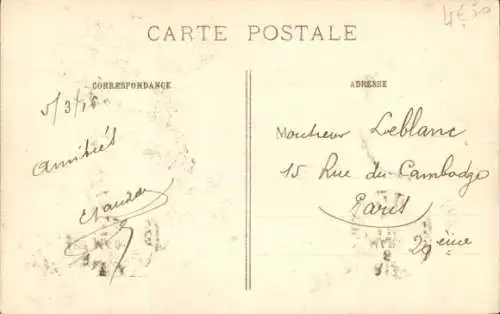 4€50
CARTE POSTALE
CORRESPONDANCE
ADRESSE
5/3/16
Amitiés
Monsieur Leblanc
15 Rue du Cambodge
Paris
20ème